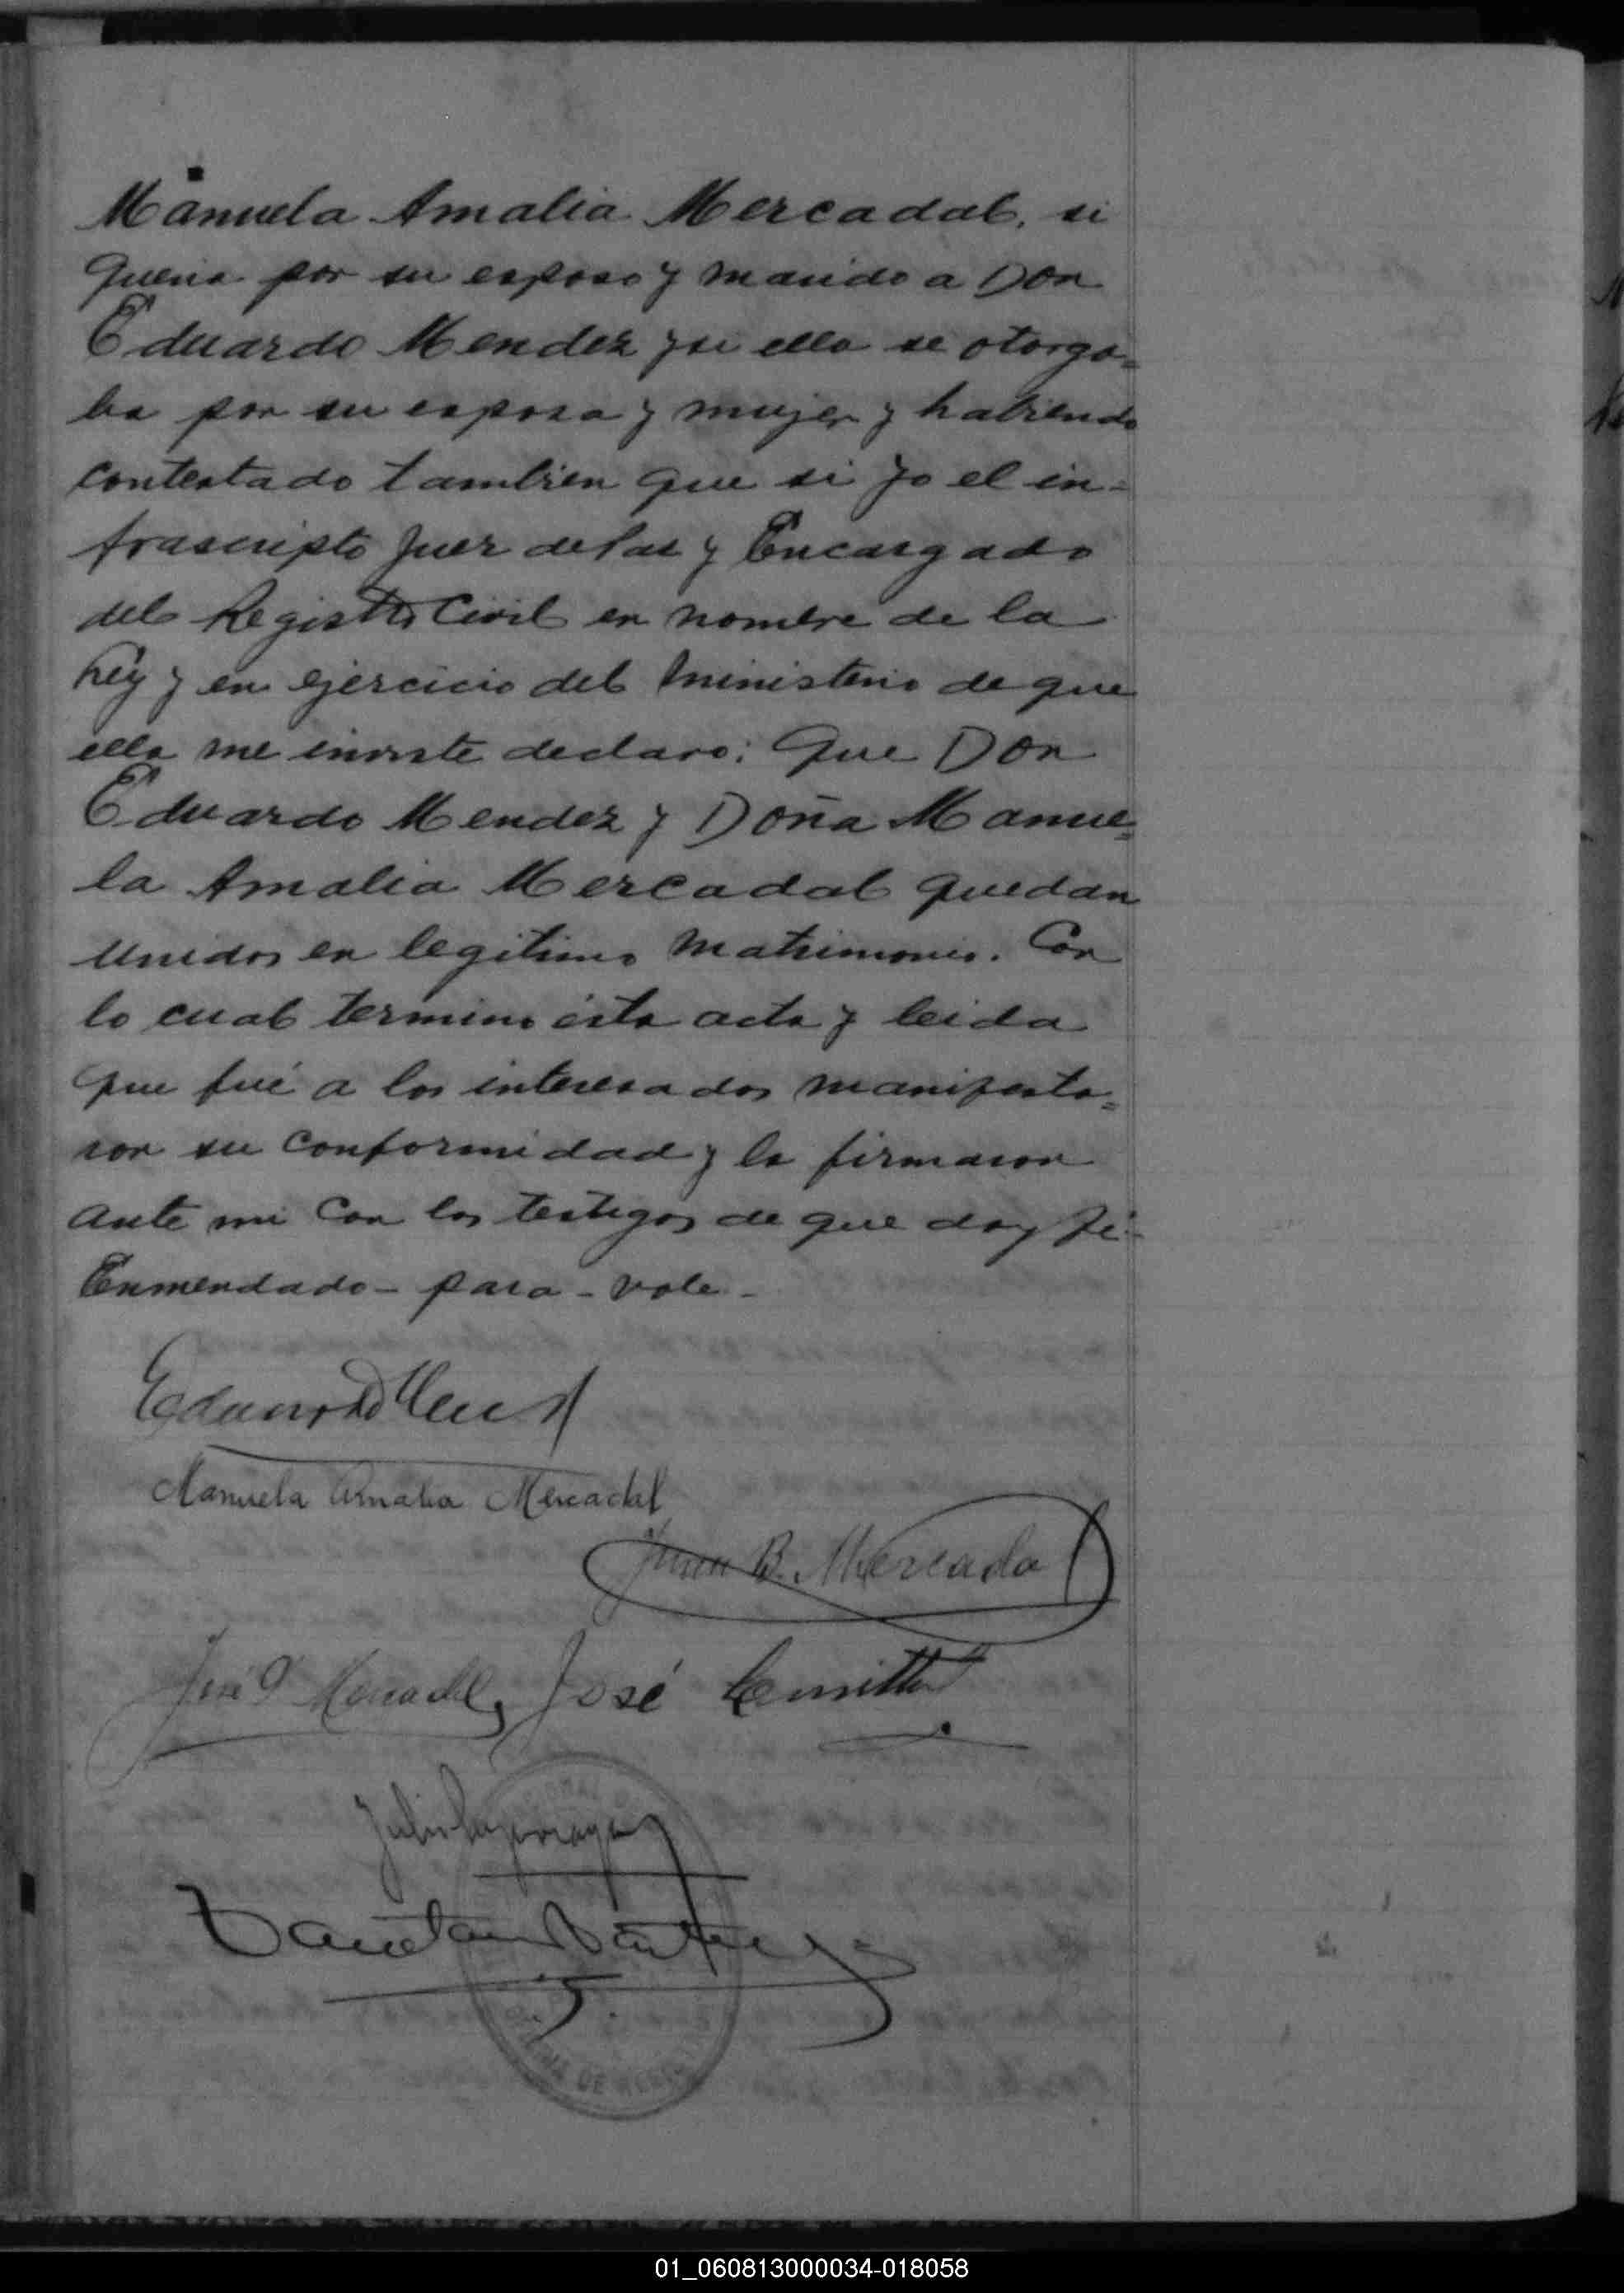 Manuela Amalia Mercadal, si
queria por su esposo y marido a Don
Eduardo Mendez y si ella se otorga=
ba por su esposa y mujer y habiendo
contestado tambien que si yo el in=
frascripto Juez de Paz y Encargado
del Registro Civil en nombre de la
Ley y en ejercicio del ministerio de que
ella me inviste declaro: Que Don
Eduardo Mendez y Doña Manue=
la Amalia Mercadal quedan
unidos en legitimo matrimonio. Con
lo cual termino ésta acta y leida
que fué a los interesados manifesta=
ron su conformidad y la firmaron
ante mi con los testigos de que doy fé-
Enmendado - para - vale -
Manuela Amalia Mercadal
Juan B. Mercadal
José Mercadal, José
Julio
DE
01_060813000034-018058